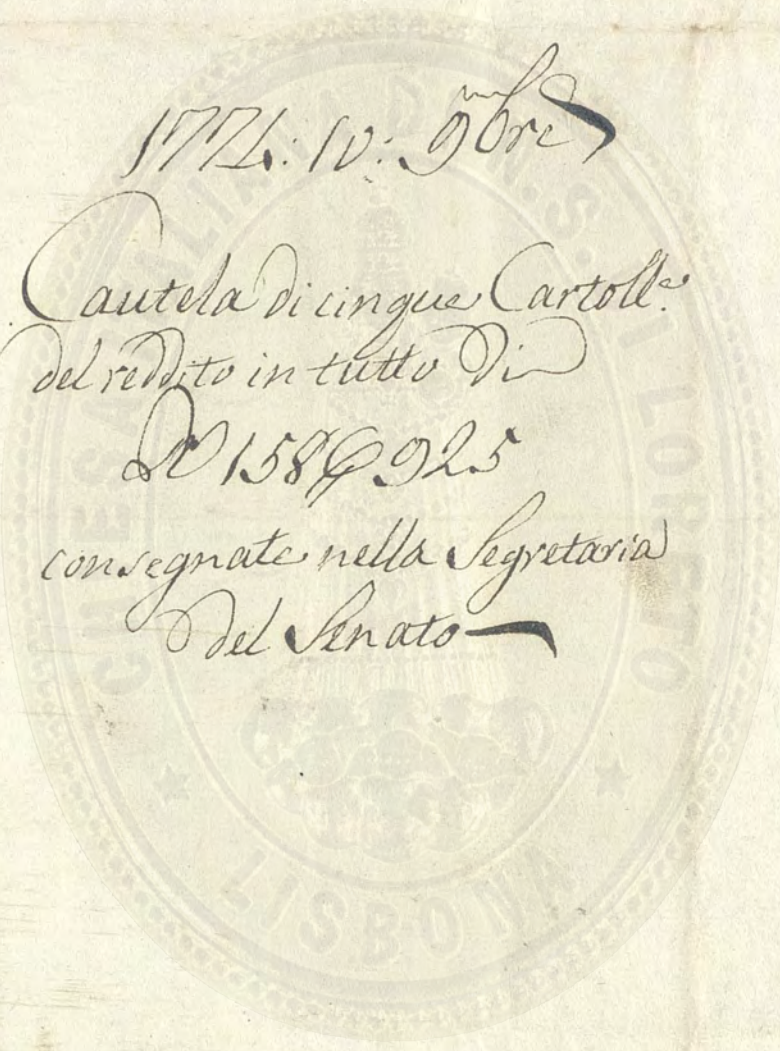 1774: 10: 9mbre
Cautela di cinque Cartoll.e
del reddito in tutto di
158$925
consegnate nella Segretaria
del Senato
CHIESA ITALIANA DI N.S. DI LORETO
LISBONA